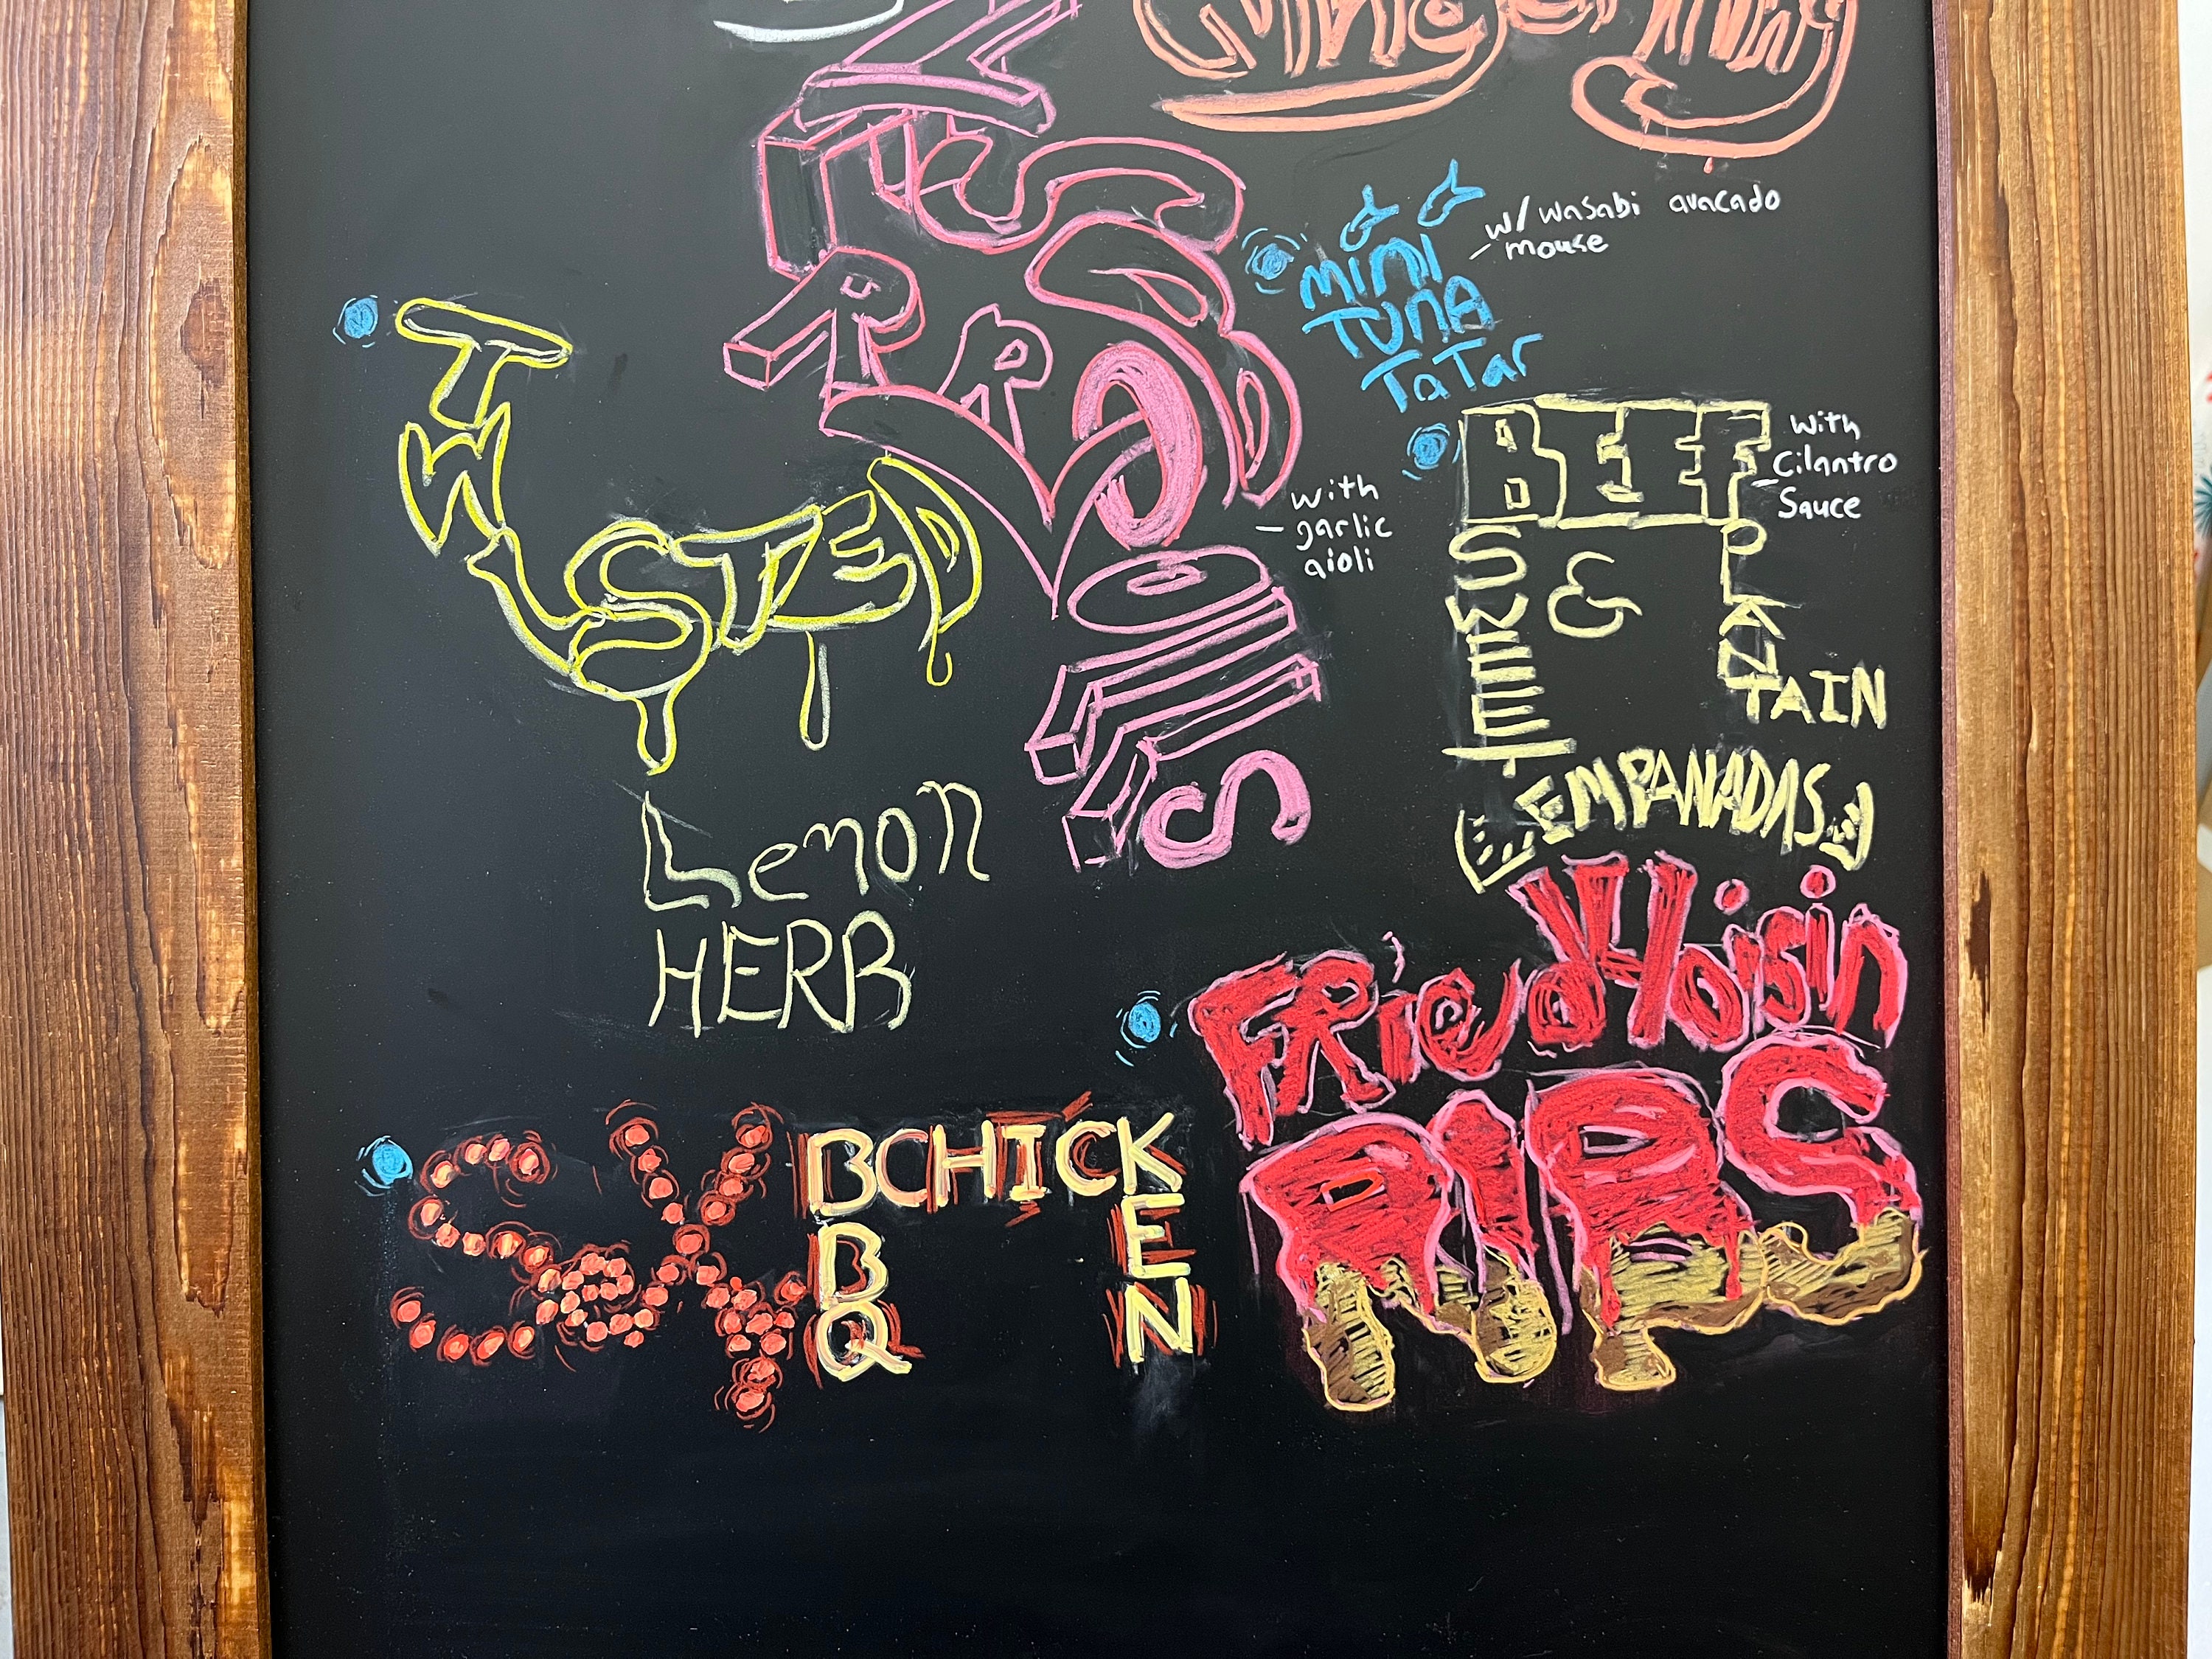 MiNi
TUNA
TaTar
w/ wasabi avacado
mouse
TWISTED
with
garlic
aioli
BEEF
with
Cilantro
Sauce
SWEET
&
PLANTAIN
EMPANADAS
Lemon
HERB
FRied Hoisin
RIBS
SeXy
BBQ
CHICKEN